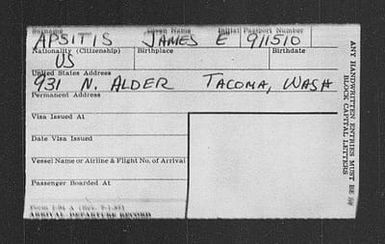 Surname Given Name Initial Passport Number
APSITIS JAMES E 9/15/0
Nationality (Citizenship) Birthplace Birthdate
US
United States Address
931 N. ALDER TACOMA, WASH
Permanent Address
Visa Issued At
Date Visa Issued
Vessel Name or Airline & Flight No. of Arrival
Passenger Boarded At
Form I-94 A
ARRIVAL DEPARTURE RECORD
ANY HANDWRITTEN ENTRIES MUST BE IN
BLOCK CAPITAL LETTERS